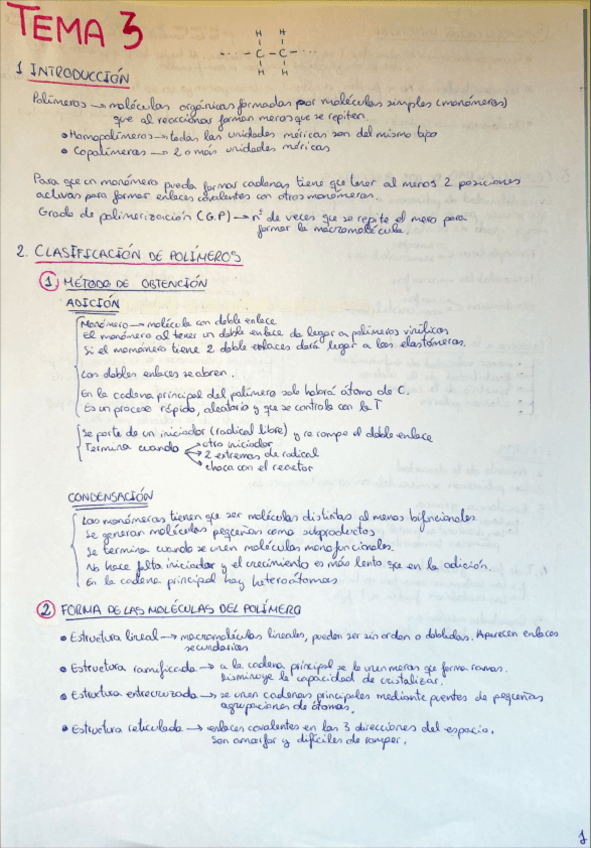 TEMA 3
H H
| |
--- C - C - ---
| |
H H
1 INTRODUCCIÓN
Polímeros → moléculas orgánicas formadas por moléculas simples (monómeros)
que al reaccionar forman meros que se repiten.
• Homopolímeros → todas las unidades méricas son del mismo tipo
• Copolímeros → 2 o más unidades méricas
Para que un monómero pueda formar cadenas tiene que tener al menos 2 posiciones
activas para formar enlaces covalentes con otros monómeros.
Grado de polimerización (G.P) → nº de veces que se repite el mero para
formar la macromolécula.
2. CLASIFICACIÓN DE POLÍMEROS
1 MÉTODO DE OBTENCIÓN
ADICIÓN
Monómero → molécula con doble enlace
El monómero al tener un doble enlace da lugar a polímeros vinílicos
Si el monómero tiene 2 doble enlaces dará lugar a los elastómeros.
Los dobles enlaces se abren.
En la cadena principal del polímero solo habrá átomo de C.
Es un proceso rápido, aleatorio y que se controla con la T
Se parte de un iniciador (radical libre) y se rompe el doble enlace
Termina cuando → otro iniciador
→ 2 extremos de radical
→ choca con el reactor
CONDENSACIÓN
Los monómeros tienen que ser moléculas distintas al menos bifuncionales
Se generan moléculas pequeñas como subproductos
Se termina cuando se unen moléculas monofuncionales.
No hace falta iniciador y el crecimiento es más lento que en la adición.
En la cadena principal hay heteroátomos
2 FORMA DE LAS MOLÉCULAS DEL POLÍMERO
• Estructura lineal → macromoléculas lineales, pueden ser sin orden o dobladas. Aparecen enlaces
secundarios
• Estructura ramificada → a la cadena principal se le unen meros que forma ramas.
Disminuye la capacidad de cristalizar.
• Estructura entrecruzada → se unen cadenas principales mediante puentes de pequeñas
agrupaciones de átomos.
• Estructura reticulada → enlaces covalentes en las 3 direcciones del espacio.
Son amorfos y difíciles de romper.
1